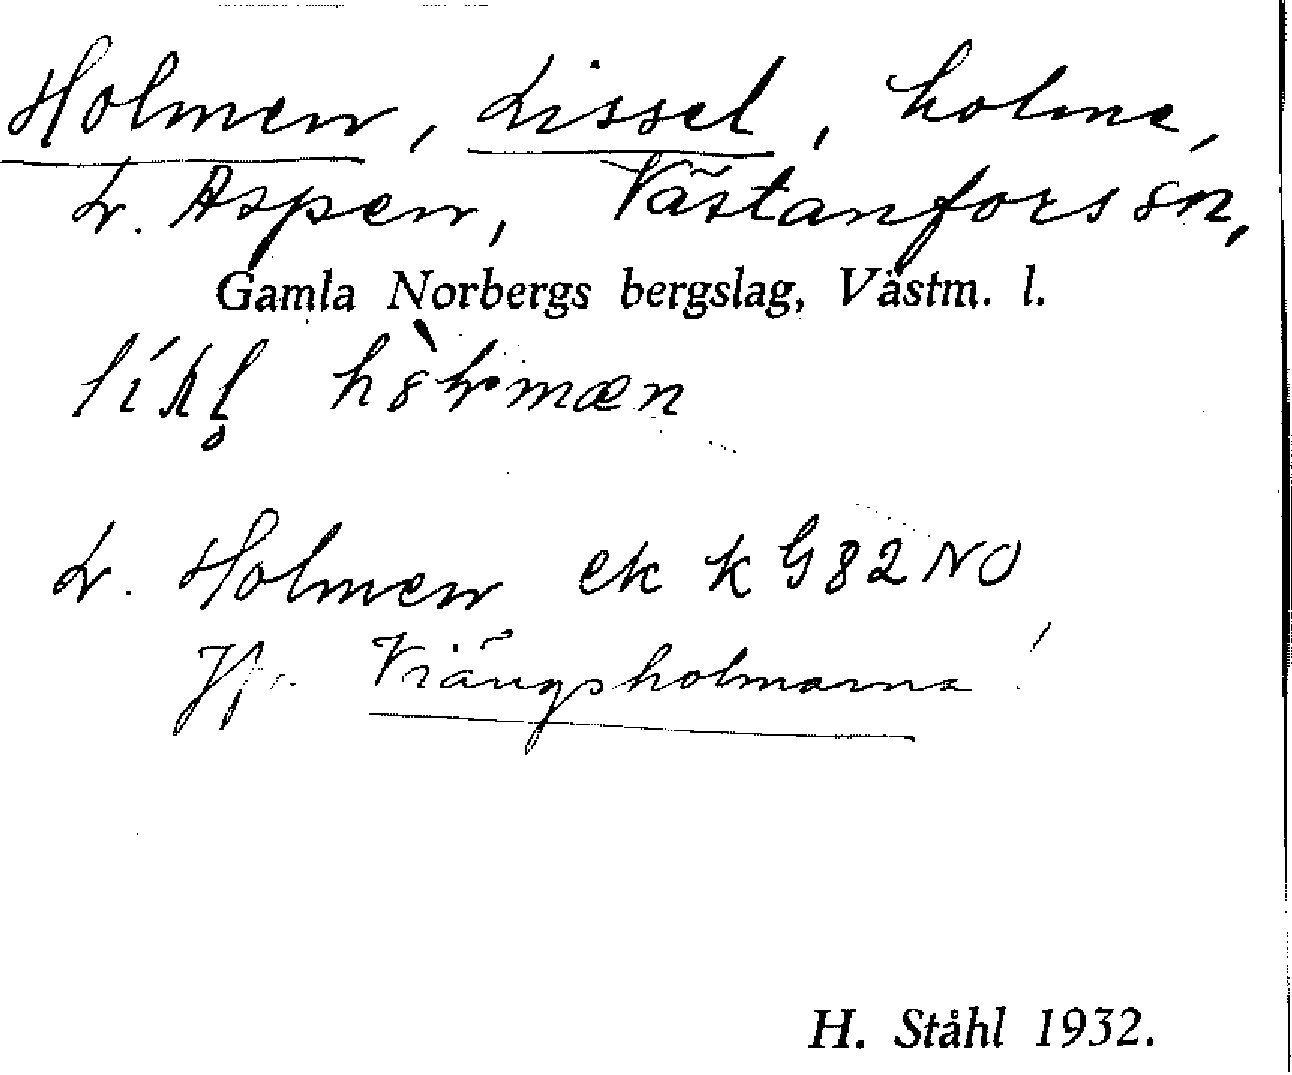 Holmen, Lissel, holme,
L. Aspen, Västanfors sn,
Gamla Norbergs bergslag, Västm. l.
L. Holmen ek k G82NO
Jfr. Viängsholmarna!
H. Ståhl 1932.